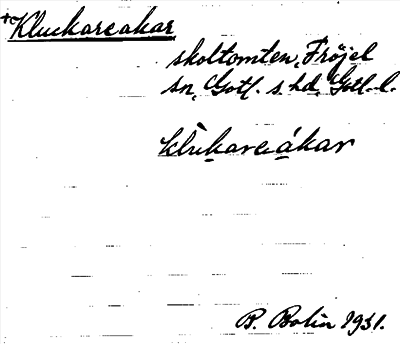 +Kluckareakar
skoltomten, Fröjel
sn, Gotl. s. hd, Gotl. l.
klùkareákar
B. Bolin 1931.